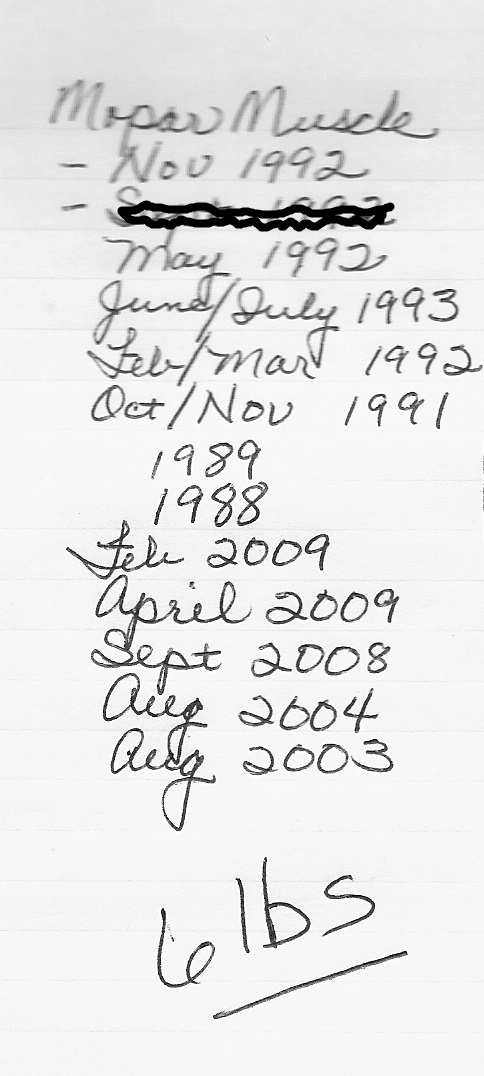 Mopar Muscle
- Nov 1992
-
May 1992
June/July 1993
Feb/Mar 1992
Oct/Nov 1991
1989
1988
Feb 2009
April 2009
Sept 2008
Aug 2004
Aug 2003
6 lbs